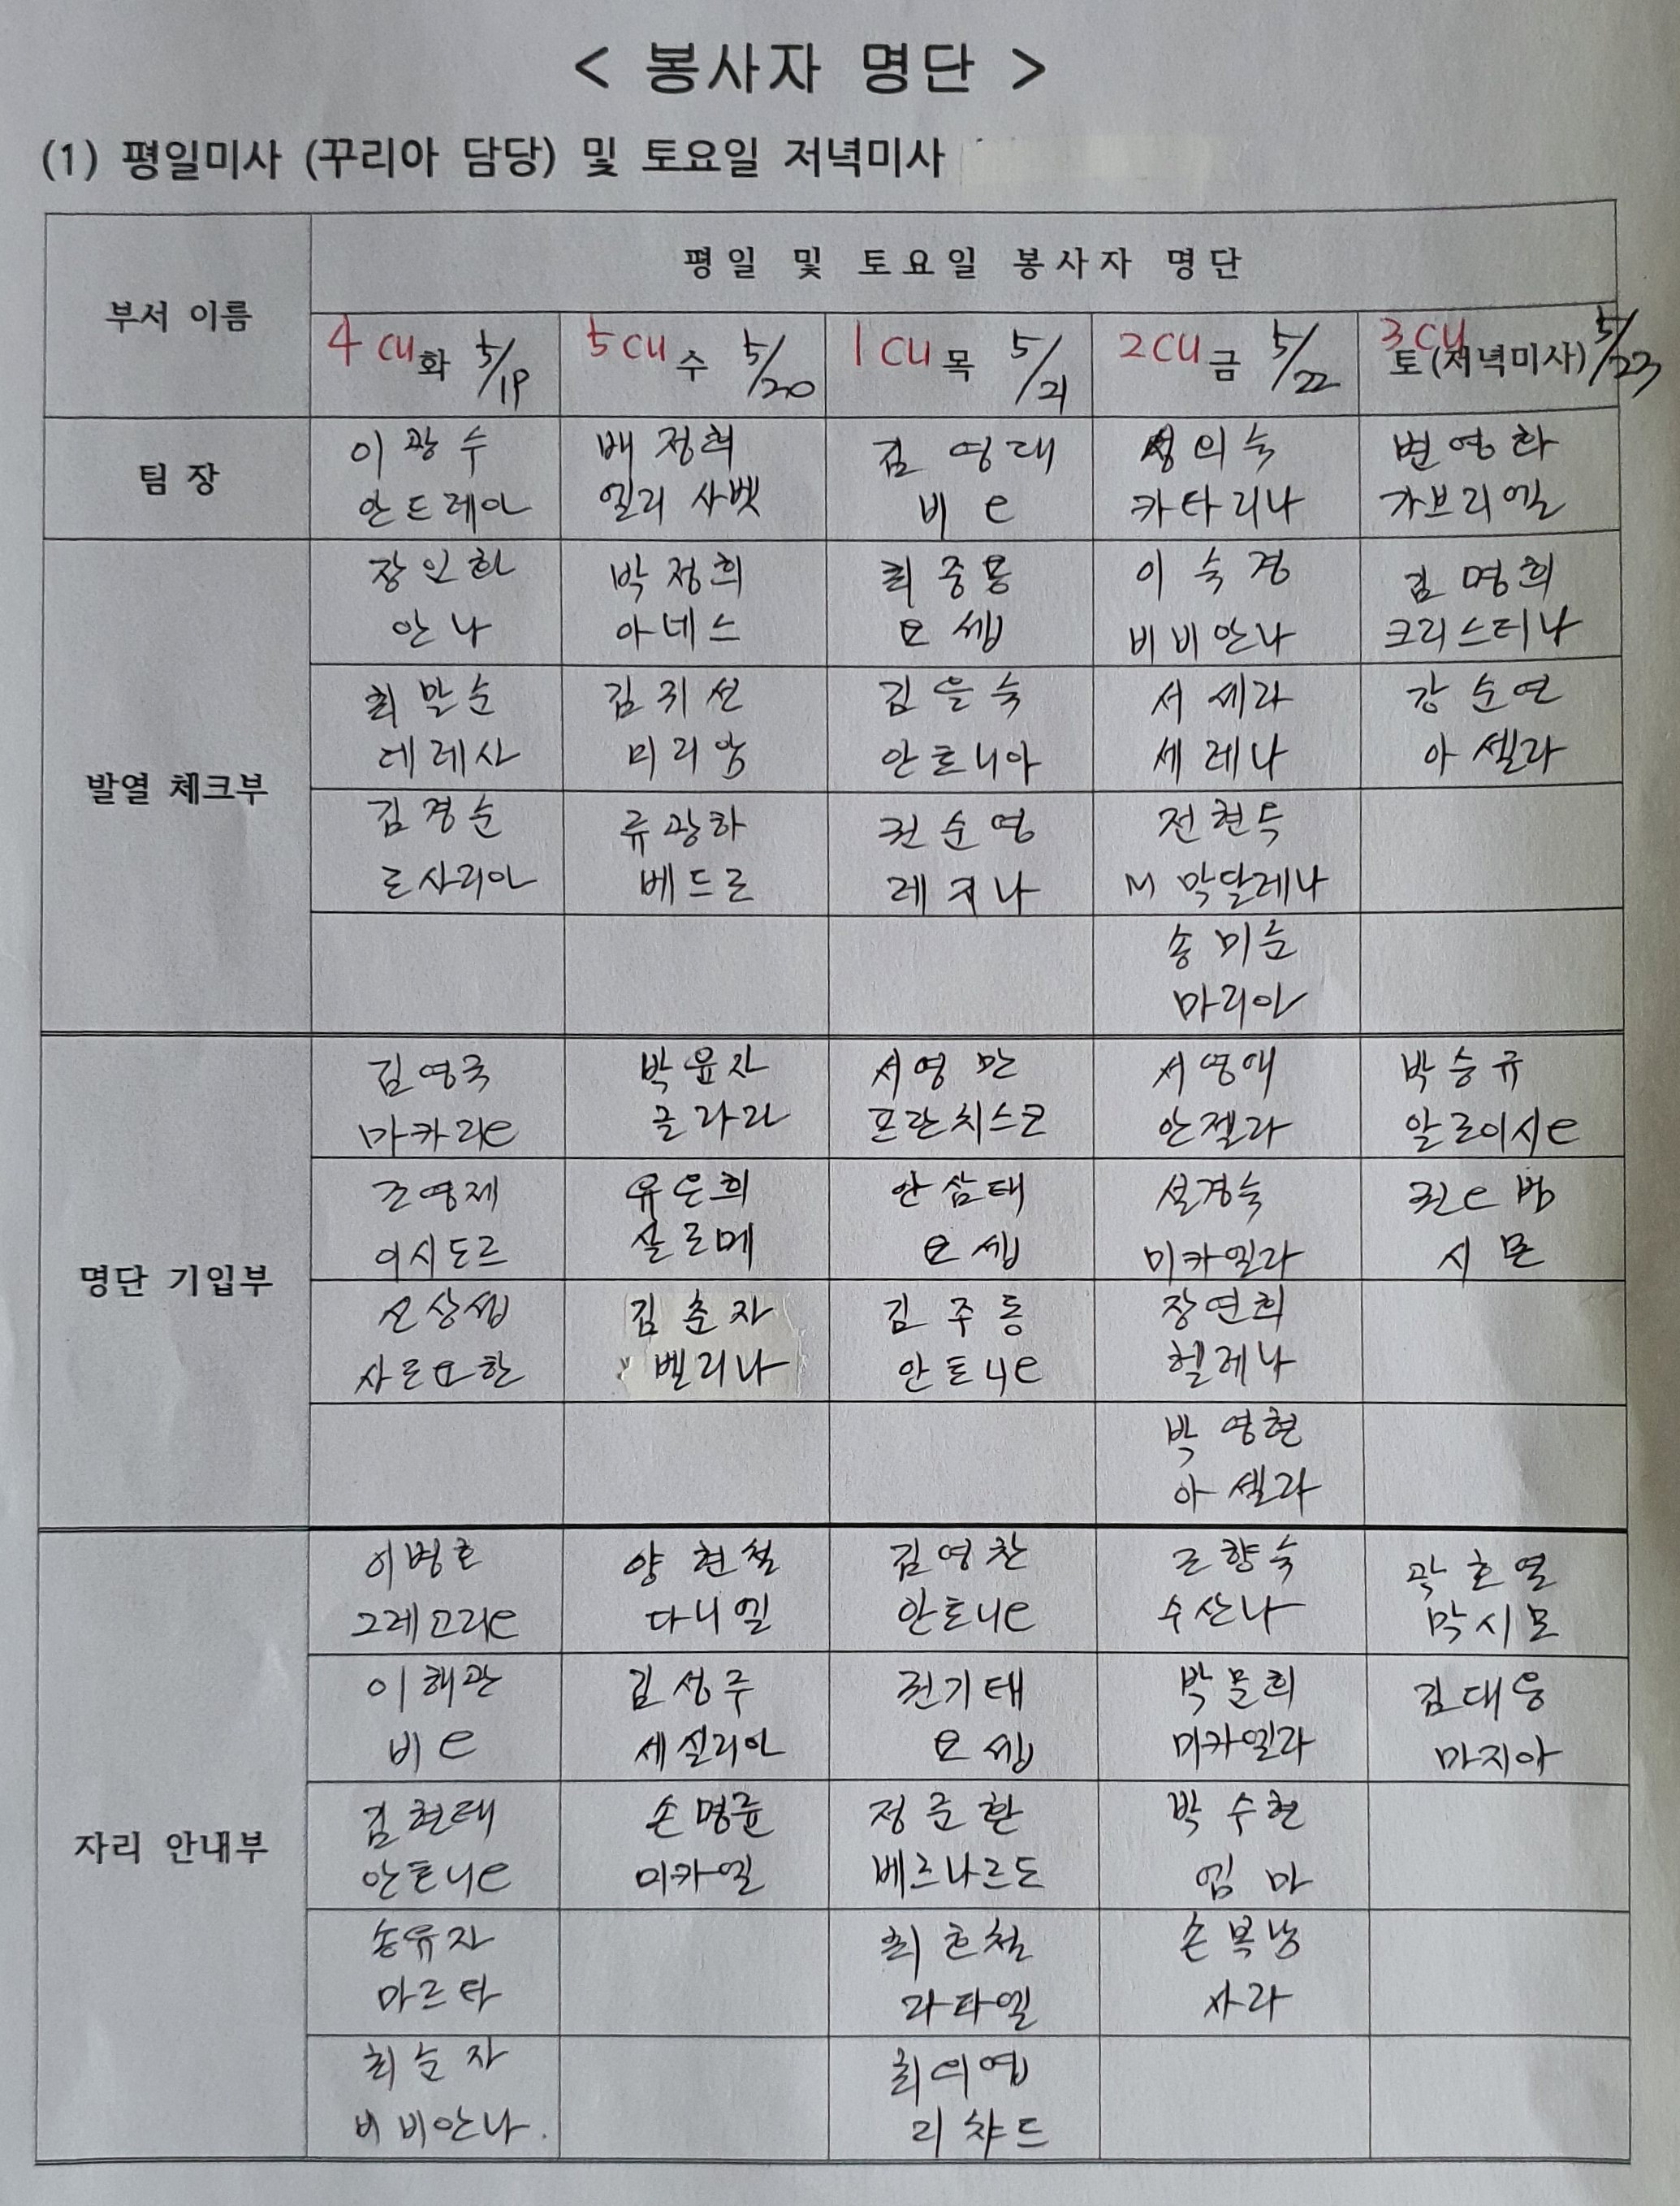 < 봉사자 명단 >
(1) 평일미사 (꾸리아 담당) 및 토요일 저녁미사
부서 이름
평일 및 토요일 봉사자 명단
4 cu 화 5/19
5 cu 수 5/20
1 cu 목 5/21
2 cu 금 5/22
3 cu 토 (저녁미사) 5/23
팀 장
이광수 배정희 김영대 성의숙 변영화
안드레아 엘리사벳 비오 카타리나 가브리엘
발열 체크부
장인화 박정희 최중용 이숙경 김명희
안나 아네스 요셉 비비안나 크리스티나
최말순 김귀선 김은숙 서세라 강순연
데레사 미리암 안토니아 세레나 아셀라
김경순 류광하 권순영 전현득
로사리아 베드로 레지나 M 막달레나
송미순
마리아
명단 기입부
김영국 박윤자 서영만 서영애 박승규
마카리오 글라라 프란치스코 안젤라 알로이시오
조영제 유은희 안삼태 설경숙 권오범
이시도르 살로메 요셉 미카엘라 시몬
신상섭 김춘자 김주동 장연희
사도요한 벨리나 안토니오 헬레나
박영현
아셀라
자리 안내부
이병호 양현철 김영찬 조향숙 곽호열
그레고리오 다니엘 안토니오 수산나 막시모
이해관 김성주 권기태 박문희 김대웅
비오 세실리아 요셉 미카엘라 마지아
김현태 손명균 정준환 박수현
안토니오 미카엘 베르나르도 엠마
송유자 최흔철 손복남
마르타 라파엘 사라
최순자 최의엽
비비안나. 리챠드